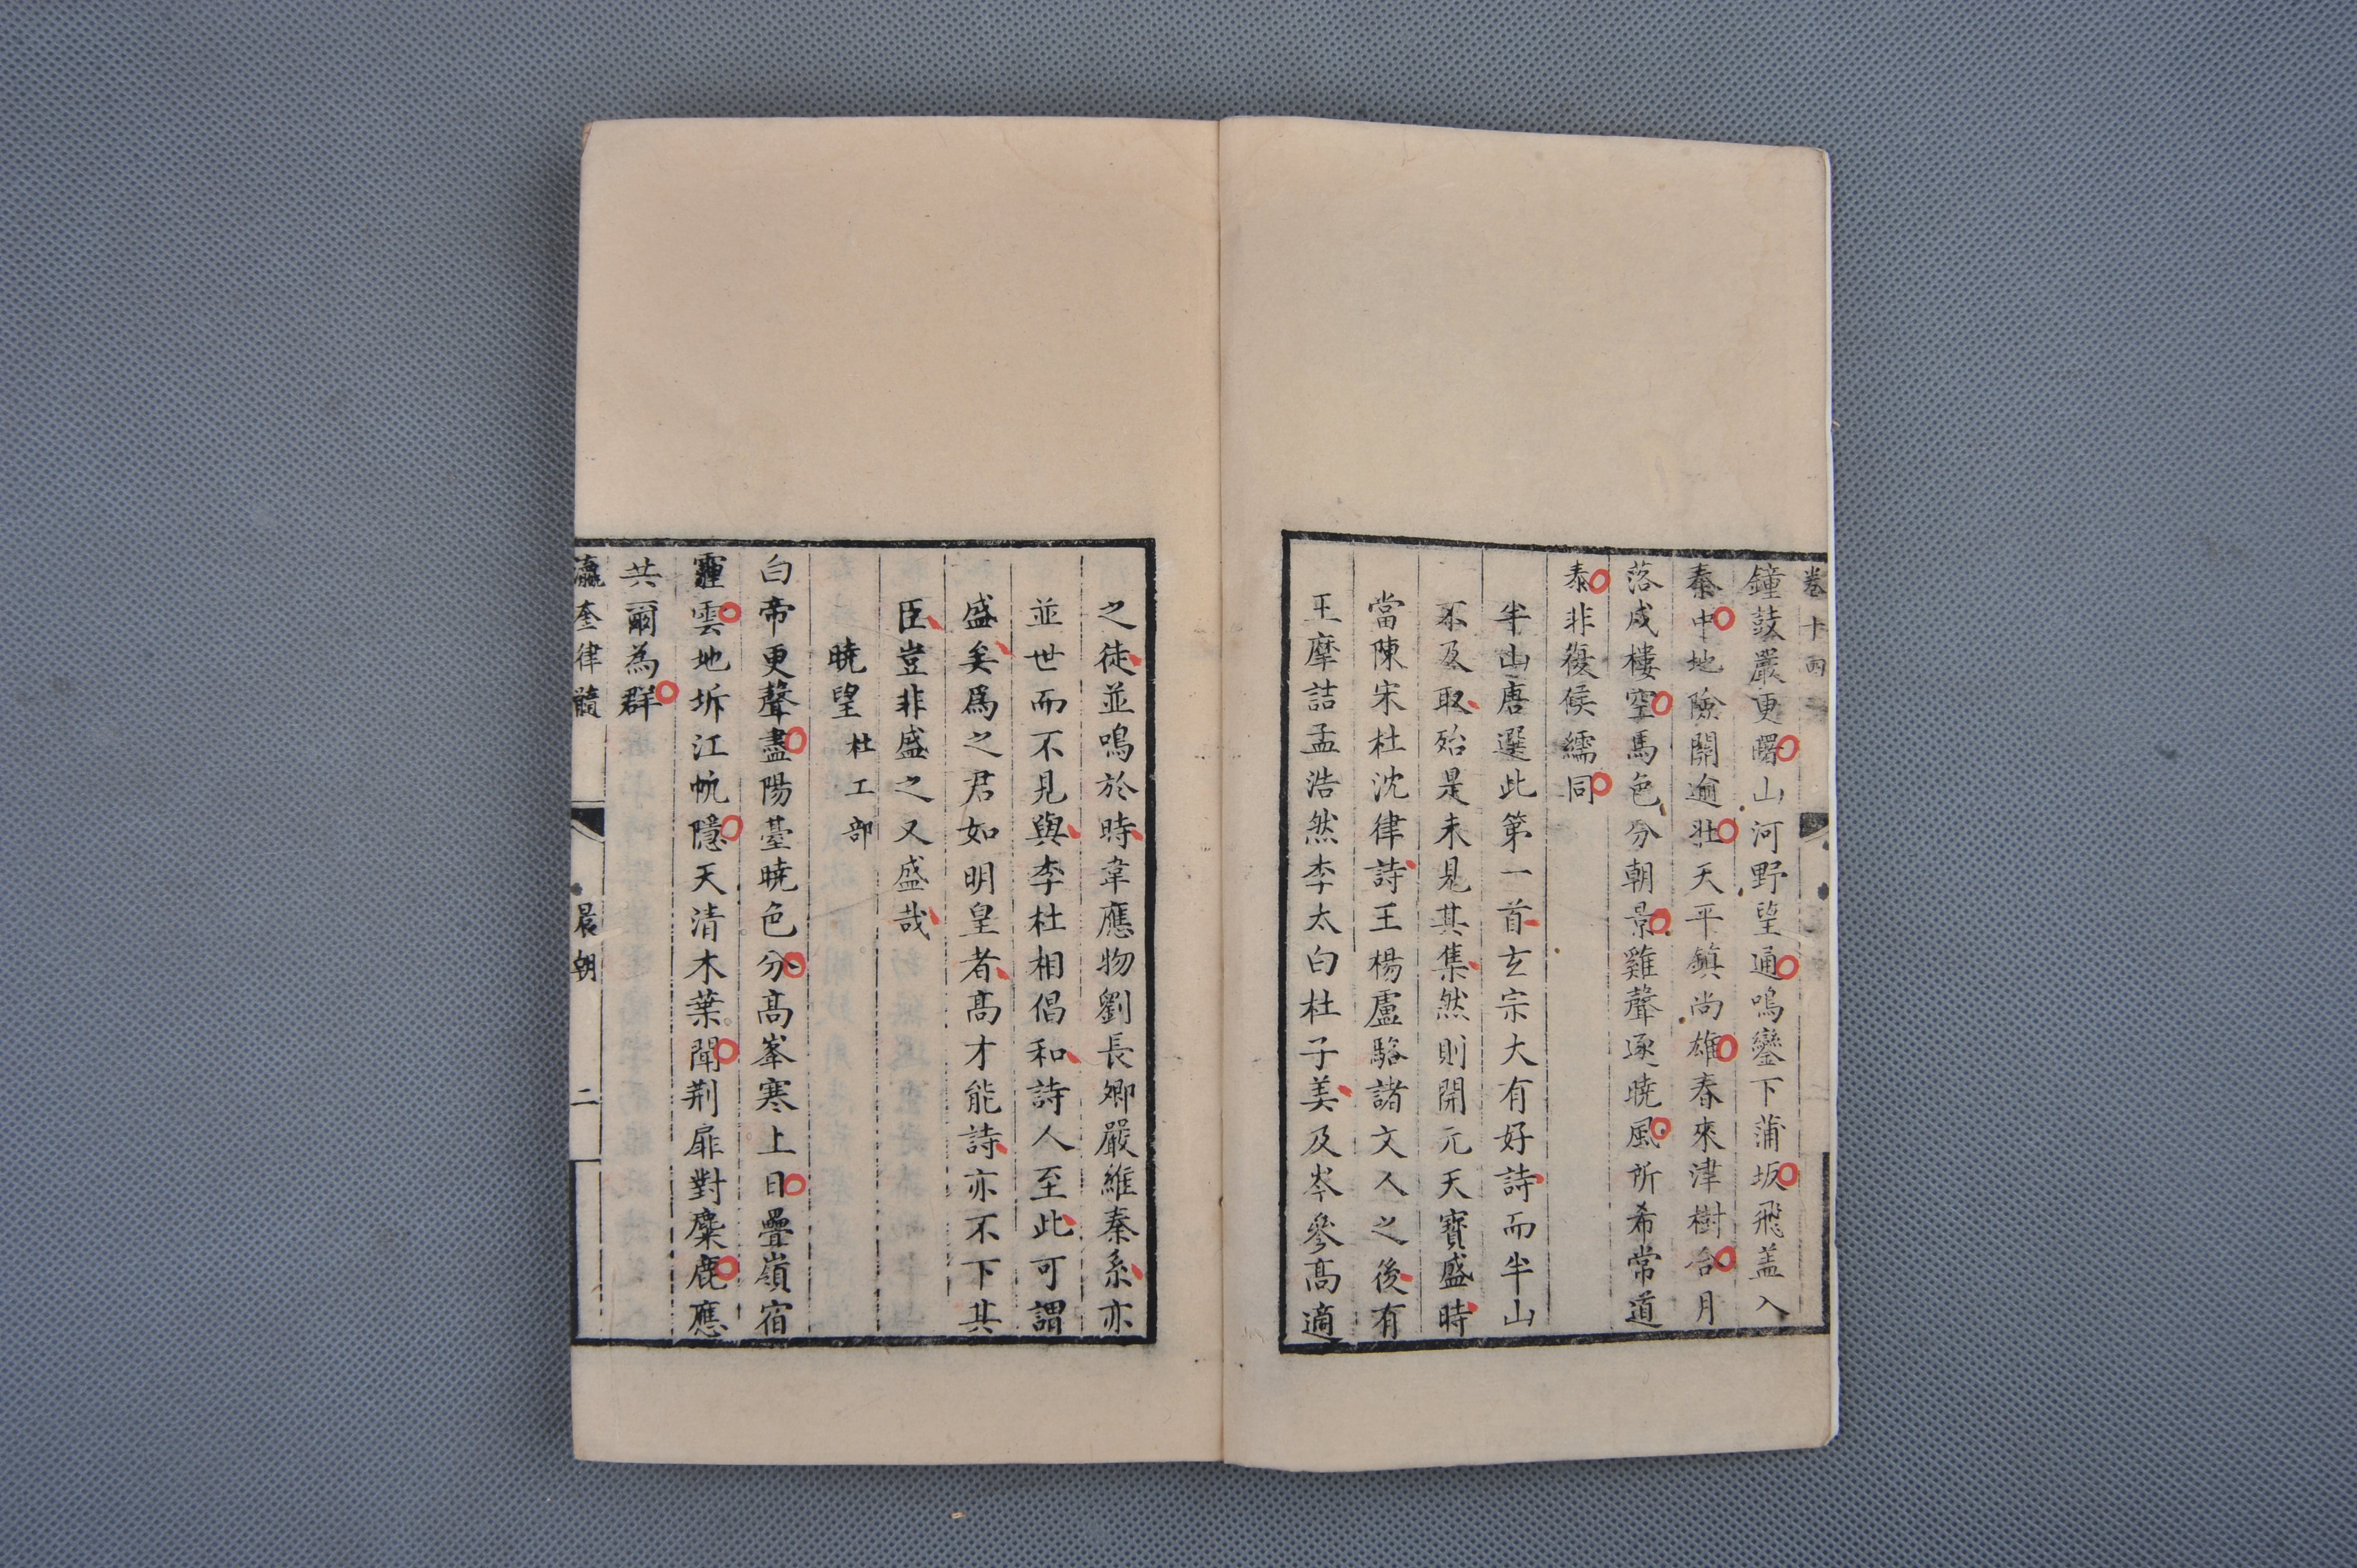 卷十四
鐘鼓嚴更曙山河野望通鳴鑾下蒲坂飛盖入
秦中地險關逾壯天平鎮尚雄春來津樹合月
落戍樓空馬色分朝景雞聲逐曉風所希常道
泰非復候繻同
半山唐選此第一首玄宗大有好詩而半山
不及取殆是未見其集然則開元天寶盛時
當陳宋杜沈律詩王楊盧駱諸文人之後有
王摩詰孟浩然李太白杜子美及岑參高適
之徒並鳴於時韋應物劉長卿嚴維秦系亦
並世而不見與李杜相倡和詩人至此可謂
盛矣爲之君如明皇者高才能詩亦不下其
臣豈非盛之又盛哉
曉望 杜工部
白帝更聲盡陽臺曉色分高峯寒上日疊嶺宿
霾雲地坼江帆隱天清木葉聞荆扉對麋鹿應
共爾為群
瀛奎律髓 晨朝 二